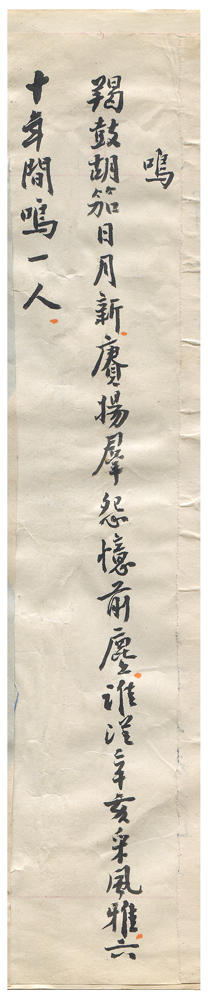 鳴
羯鼓胡笳日月新賡揚羣怨憶前塵誰從辛亥采風雅六
十年間鳴一人